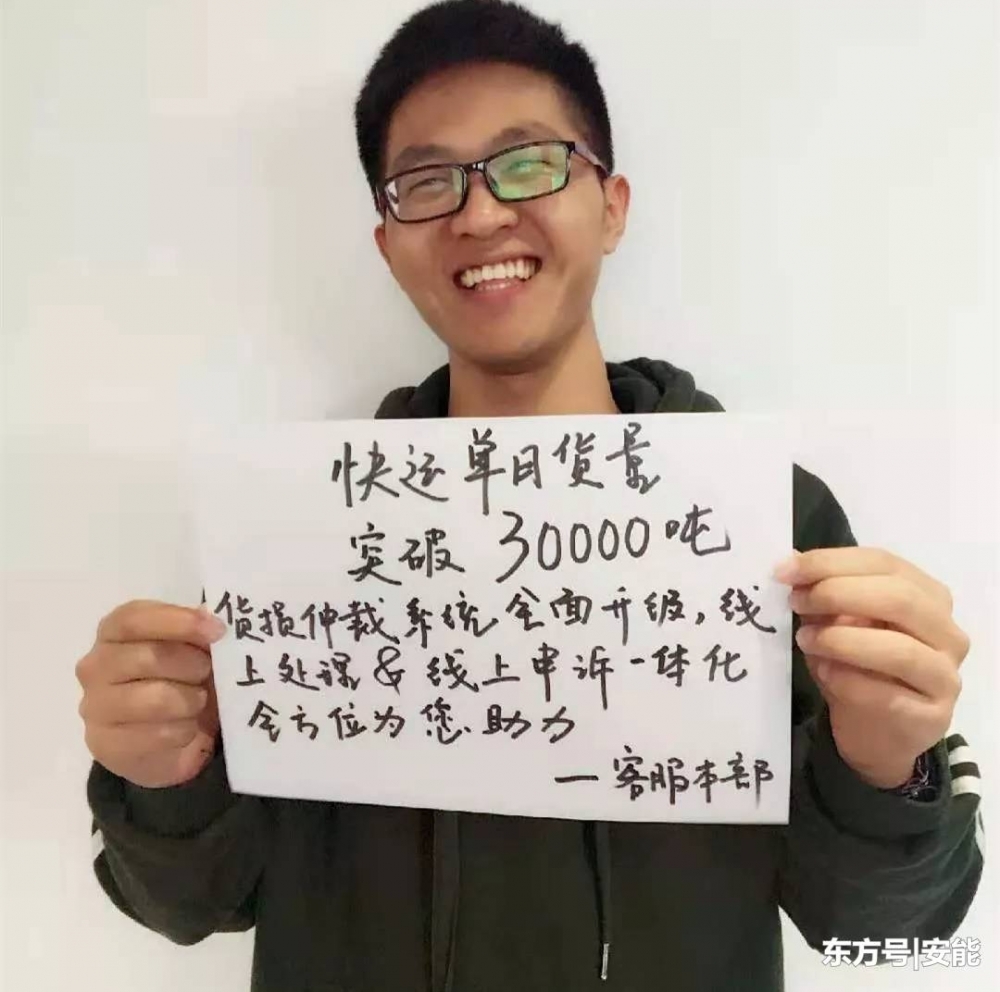 快运单日货量
突破 30000吨
货损仲裁系统全面升级,线
上处理&线上申诉一体化
全方位为您助力
—客服本部
东方号|安能